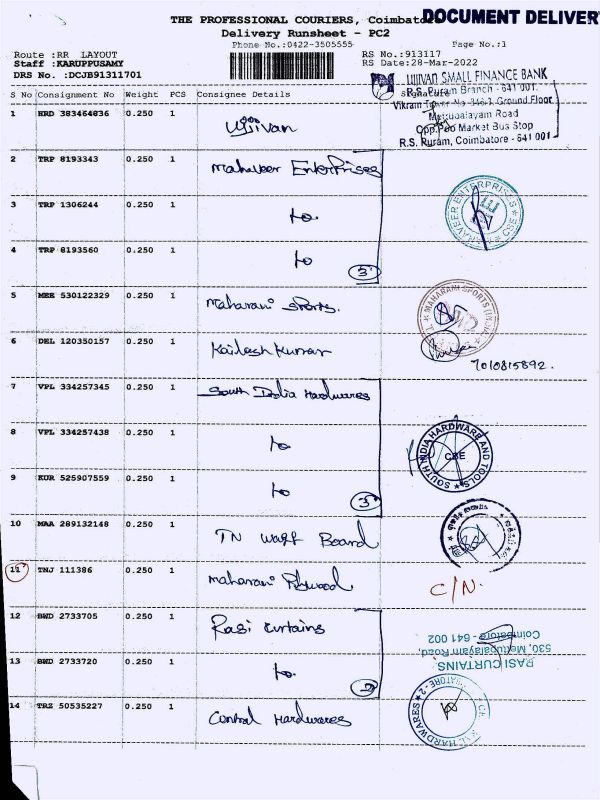 THE PROFESSIONAL COURIERS, Coimbato
DOCUMENT DELIVER
Delivery Runsheet - PC2
Phone No.:0422-3505555
Page No.:1
Route :RR LAYOUT
RS No.:913117
Staff :KARUPPUSAMY
RS Date:28-Mar-2022
DRS No. :DCJB91311701
S No Consignment No Weight PCS Consignee Details Signature
UJJIVAN SMALL FINANCE BANK
R.S. Puram Branch - 641 001.
Ground Floor
Mettupalayam Road
Market Bus Stop
R.S. Puram, Coimbatore - 641 001
1 HRD 383464836 0.250 1 Ujjivan
2 TRP 8193343 0.250 1 Mahaveer Enterprises
3 TRP 1306244 0.250 1 to
MAHAVEER ENTERPRISES CBE
4 TRP 8193560 0.250 1 to
3
5 MEE 530122329 0.250 1 Maharani sports.
MAHARANI SPORTS
6 DEL 120350157 0.250 1 Kailesh Kumar
7010815892.
7 VPL 334257345 0.250 1 South India Hardwares
8 VPL 334257438 0.250 1 to
SOUTH INDIA HARDWARE AND TOOLS
CBE
9 KUR 525907559 0.250 1 to
3
10 MAA 289132148 0.250 1 TN Wakf Board
11 TNJ 111386 0.250 1 Maharani Plywood
C/N.
12 BWD 2733705 0.250 1 Rasi Curtains
RASI CURTAINS
530, Mettupalayam Road,
Coimbatore - 641 002
13 BWD 2733720 0.250 1 to.
2
14 TRZ 50535227 0.250 1 Central Hardwares
HARDWARES